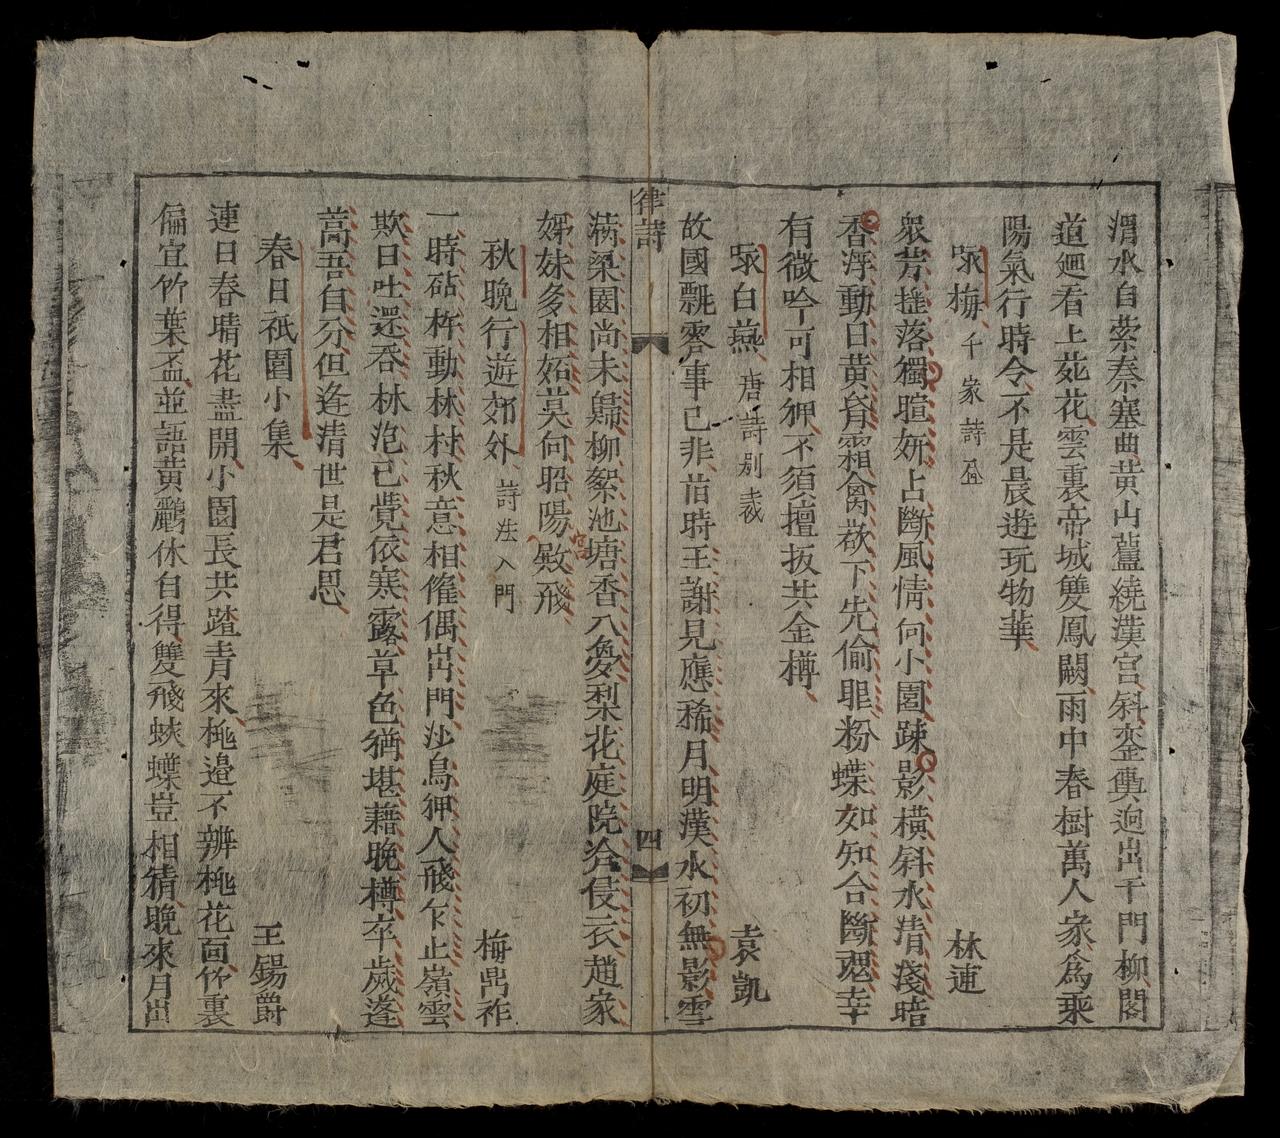 渭水自萦秦塞曲黄山舊繞漢宫斜鑾輿迥出千門柳閣
道迴看上苑花雲裏帝城雙鳳闕雨中春樹萬人家爲乘
陽氣行時令不是宸遊玩物華
咏梅 千家詩 林逋
衆芳摇落獨暄妍占斷風情向小園踈影横斜水清淺暗
香浮動日黄昏霜禽欲下先偷眼粉蝶如知合斷魂幸
有微吟可相狎不須擅板共金樽
咏白燕 唐詩别裁 袁凱
故國飄零事已非旧時王謝見應稀月明漢水初無影雪
律詩 四
满梁園尚未歸柳絮池塘香入夢梨花庭院冷侵衣趙家
姊妹多相妬莫向昭陽殿飛
宫
秋晚行遊郊外 詩法入門 梅鼎祚
一時砧杵動林村秋意相催偶出門沙鳥狎人飛乍止嶺雲
欺日吐還吞林泡已覺依寒露草色猶堪藉晚樽卒歲蓬
蒿吾自分但逢清世是君恩
春日祇園小集 王錫爵
連日春晴花盡開小園長共踏青來桃邉不辨桃花面竹裏
偏宜竹葉盃並語黄鸝休自得雙飛蛺蝶豈相猜晚來月出